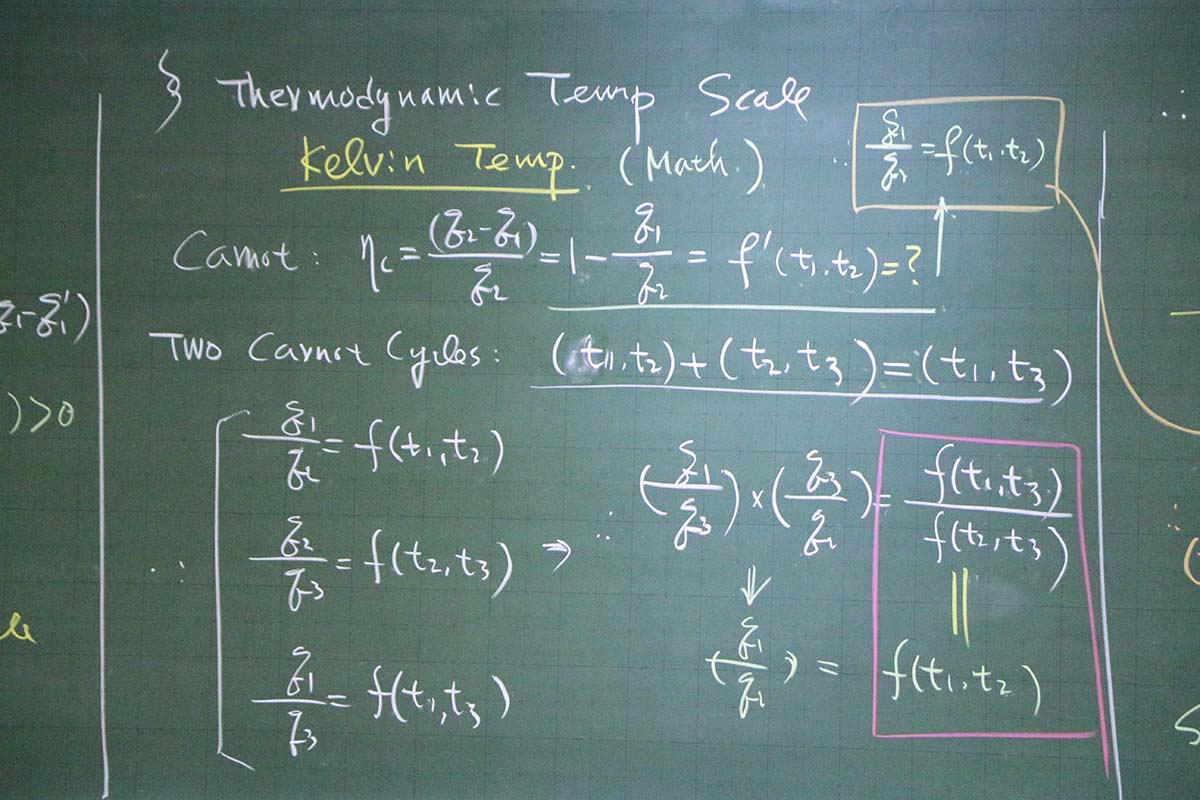 § Thermodynamic Temp Scale
Kelvin Temp. (Math.)
∴ q₁/q₂ = f(t₁.t₂)
Carnot: η_c = (q₂-q₁)/q₂ = 1 - q₁/q₂ = f'(t₁.t₂) = ?
q₁-q₁')
Two Carnot Cycles: (t₁,t₂)+(t₂,t₃)=(t₁,t₃)
)>0
q₁/q₂ = f(t₁,t₂)
∴ q₂/q₃ = f(t₂,t₃) ⇒ ∴ (q₁/q₃)×(q₃/q₂) = f(t₁,t₃)/f(t₂,t₃)
⇓ ||
q₁/q₃ = f(t₁,t₃)
(q₁/q₂) = f(t₁.t₂)